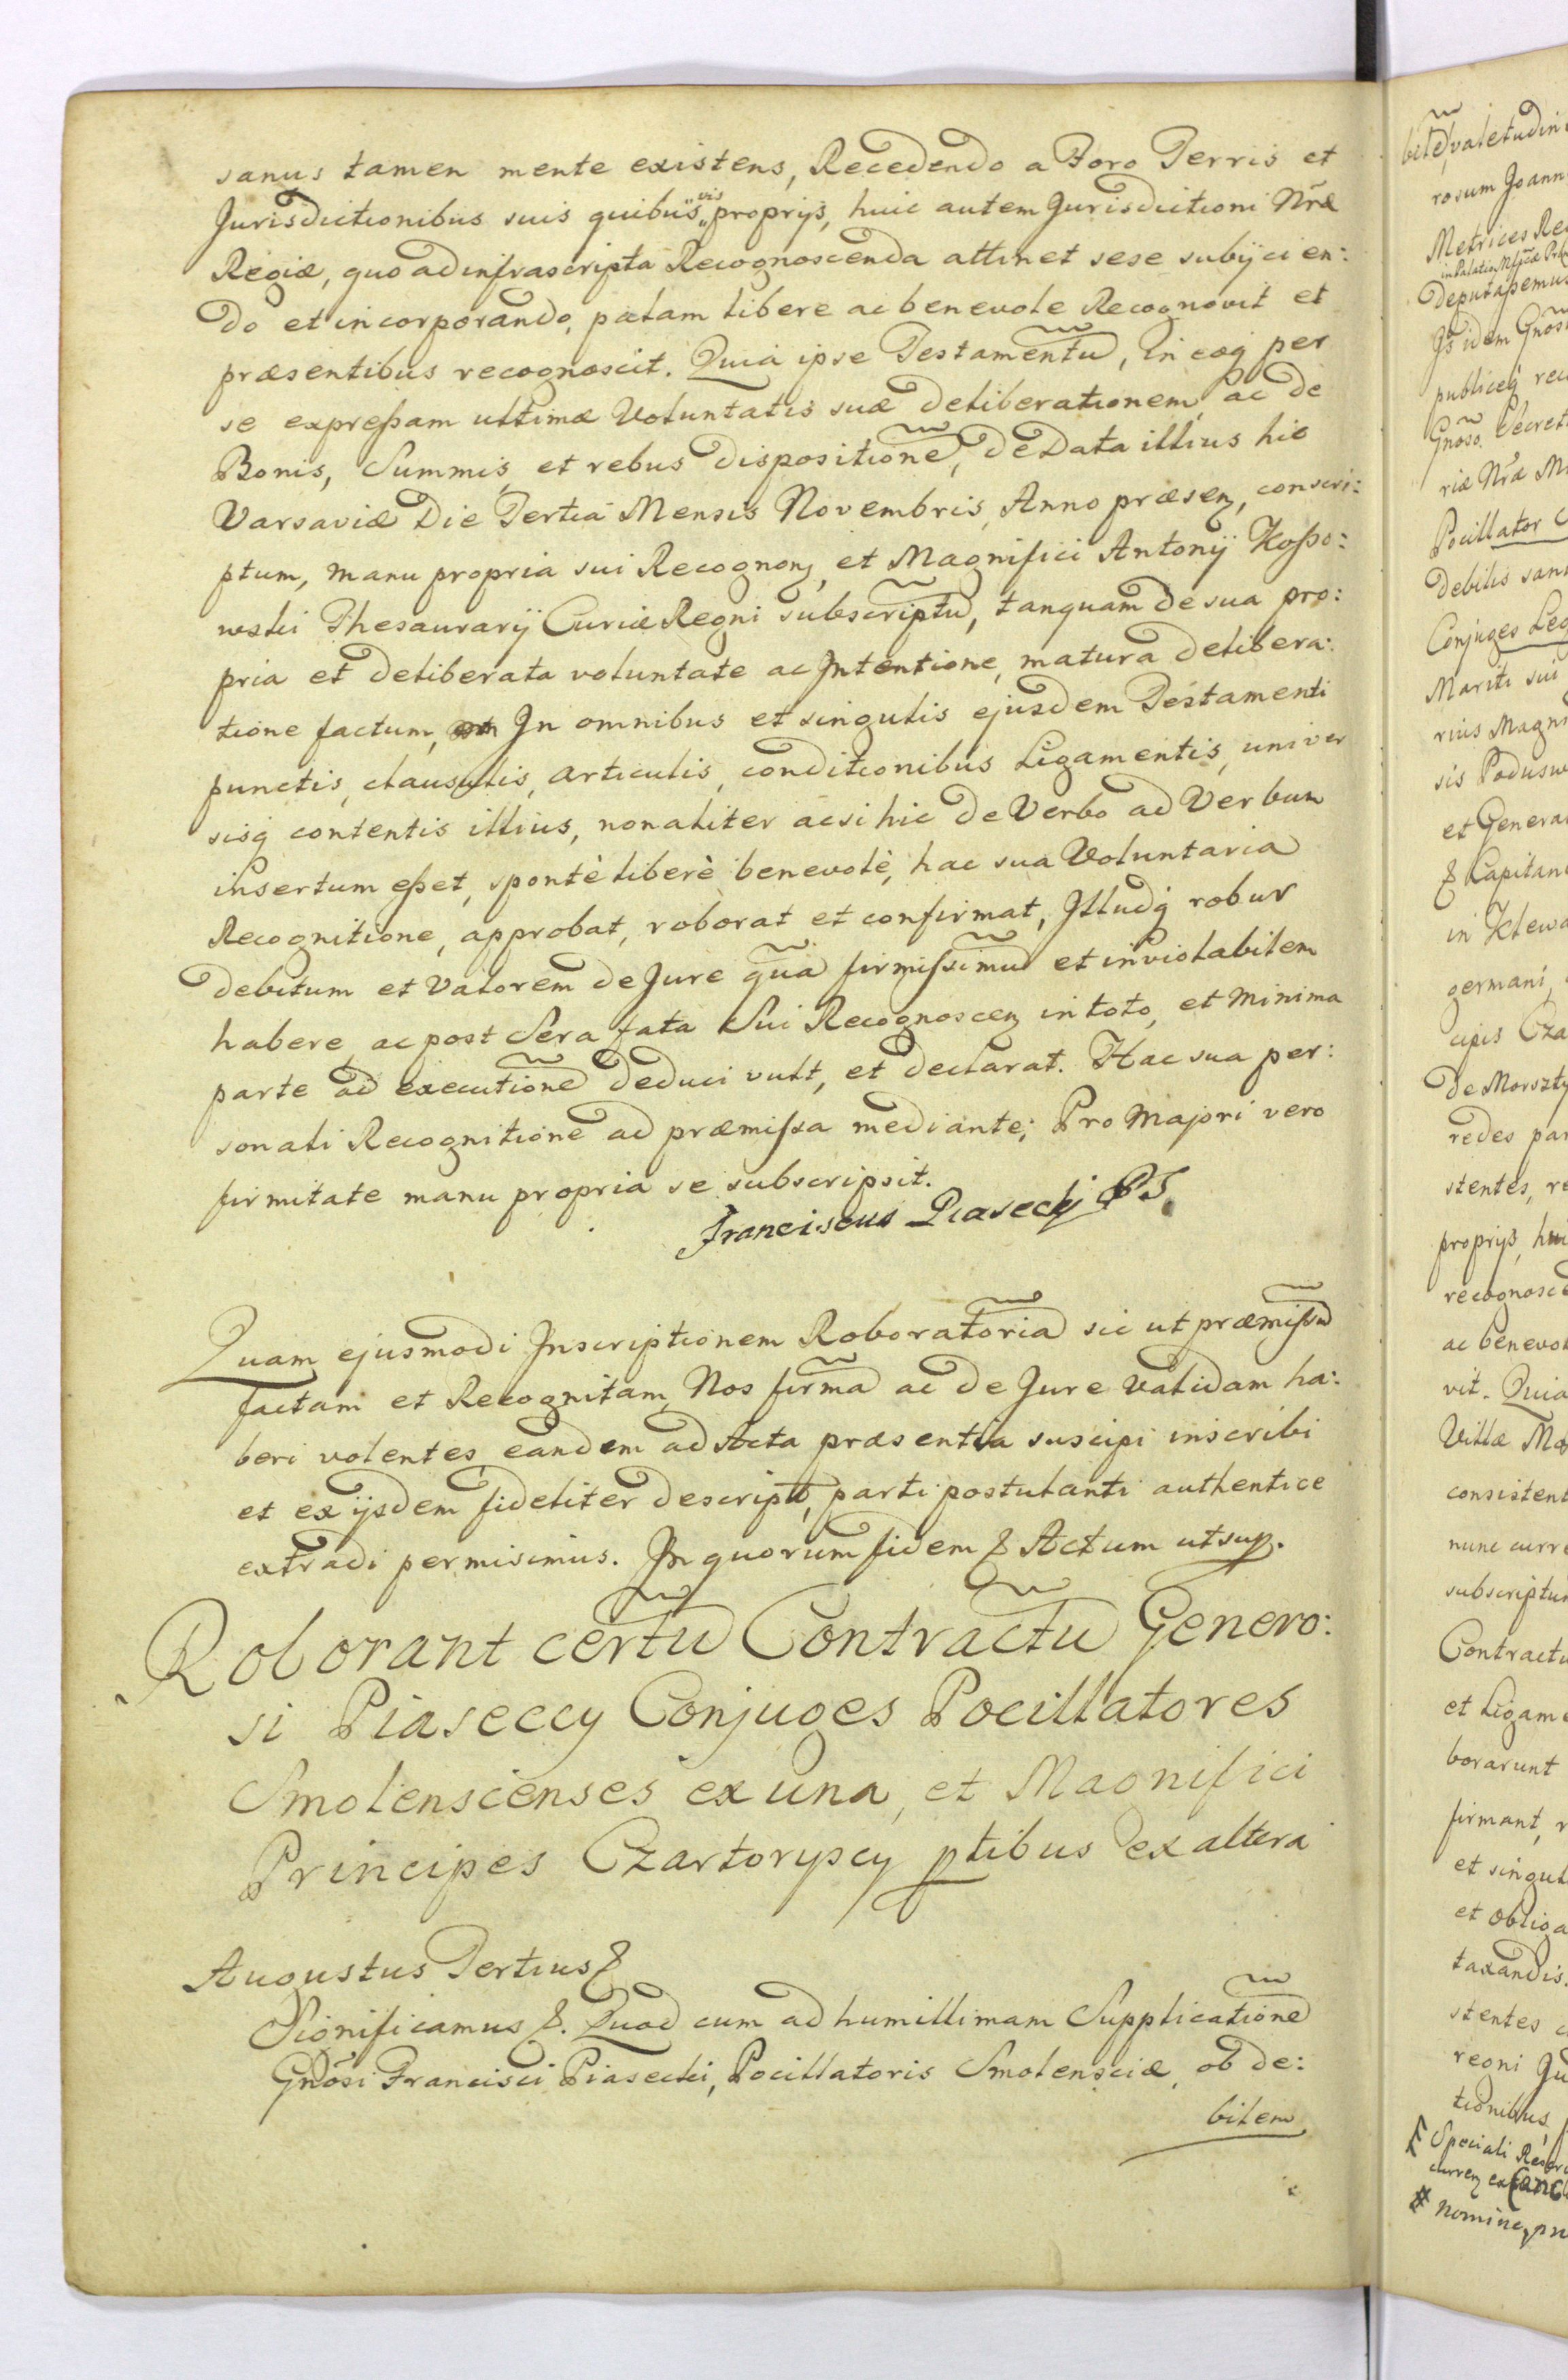 sanus tamen mente existens, Recedendo a Foro Terris et
Jurisdictionibus suis quibus"vis" proprijs, huic autem Jurisdictioni Nræ
Regiæ, quo ad infrascripta Recognoscenda attinet sese subijcien:
do et incorporando, palam libere ac benevole Recognovit et
præsentibus recognoscit. Quia ipse Testamentū, In eoq per
se expressam ultimæ Voluntatis suæ deliberationem, ac de
Bonis, Summis, et rebus dispositionē, de Data illius hic
Varsaviæ Die Tertia Mensis Novembris, Anno præsen, conscri:
ptum, manu propria sui Recognon, et Magnifici Antonij Kosso:
wski Thesaurarij Curiæ Regni subscriptū, tanquam de sua pro:
pria et deliberata voluntate ac Intentione, matura delibera:
tione factum, In omnibus et singulis ejusdem Testamenti
punctis, clausulis, articulis, conditionibus Ligamentis, univer
sisq contentis illius, non aliter ac si hic de Verbo ad Verbum
insertum esset, spontè liberè benevolè, hac sua Voluntaria
Recognitione, approbat, roborat et confirmat, Illudq robur
debitum et valorem de Jure quā firmissimū et inviolabilem
habere, ac post Sera fata Sui Recognoscen in toto, et minima
parte ad executionē deduci vult, et declarat. Hac sua per:
sonali Recognitione ad præmissa mediante; Pro Majori vero
firmitate manu propria se subscripsit.
Franciscus Piasecki PS
Quam ejusmodi Inscriptionem Roboratoriā sic ut præmissū
factam et Recognitam, Nos firmā ac de Jure validam ha:
beri volentes, eandem ad Acta præsentia suscipi inscribi
et ex ijsdem fideliter descriptū, parti postulanti authentice
extradi permisimus. In quorum fidem & Actum ut sup.
Roborant certū Contractū Genero:
si Piaseccy Conjuges Pocillatores
Smolenscenses ex una, et Magnifici
Principes Czartoryscy ptibus ex altera
Augustus Tertius &
Significamus &. Quod cum ad humillimam Supplicationē
Gnōsi Francisci Piasecki, Pocillatoris Smolensciæ, ob de:
bilem
valetudin
rosum Joann
Metrices Re
Deputassemus
Is idem Gnos
publiceq rec
Gnoso. Secret
riæ Nræ M
Pocillator
debilis san
Conjuges Leg
Mariti sui
rius Magn
sis Podusw
et Genera
& Capitan
in Klewa
germani,
cipis Cza
de Morszty
redes par
stentes, re
proprijs, hu
recognosce
ac benevol
vit. Quia
Villæ Ma
consistent
nunc curre
subscriptu
Contractu
et Ligame
borarunt
firmant, r
et singul
et obliga
taxandis.
stentes c
regni Ju
tionibus,
Speciali
nomine